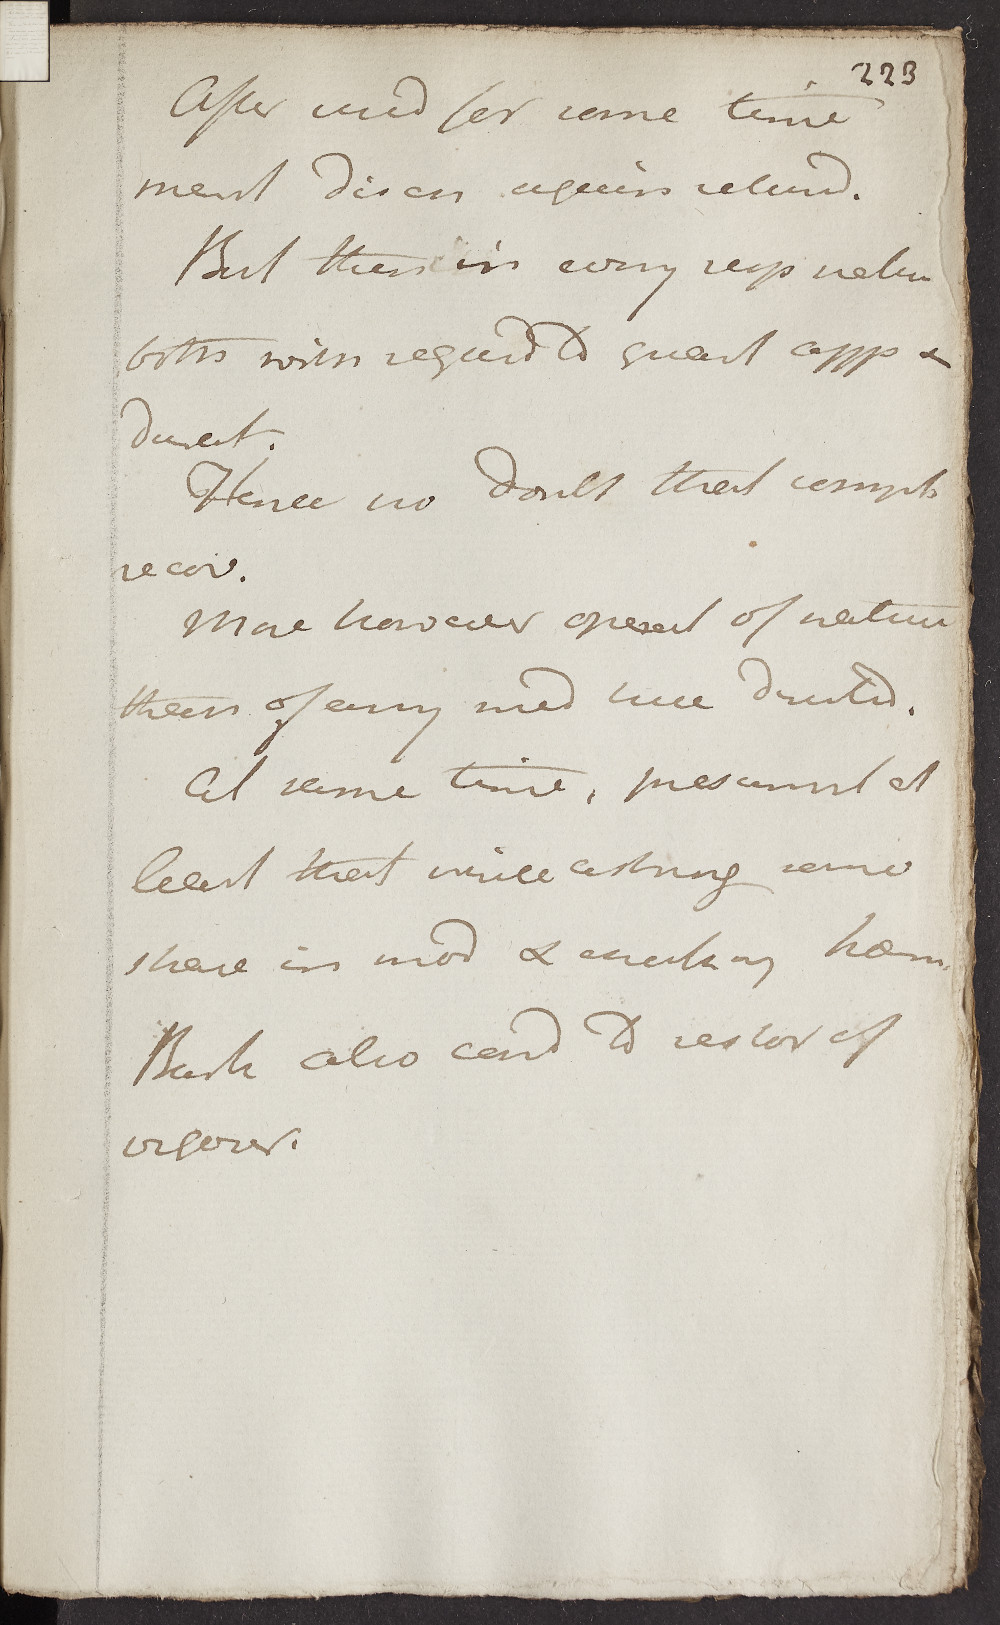 223
After used for some time
menst disch again return'd.
But then in every resp natur
both with regard to quant app &
durat.
Hence no doubt that compt
recov.
More however operat of nature
than of any med here direct'd.
At same time, presum'd at
least that while astring some
share in mod & checking hæm.
Bark also cond to restor of
vigour.